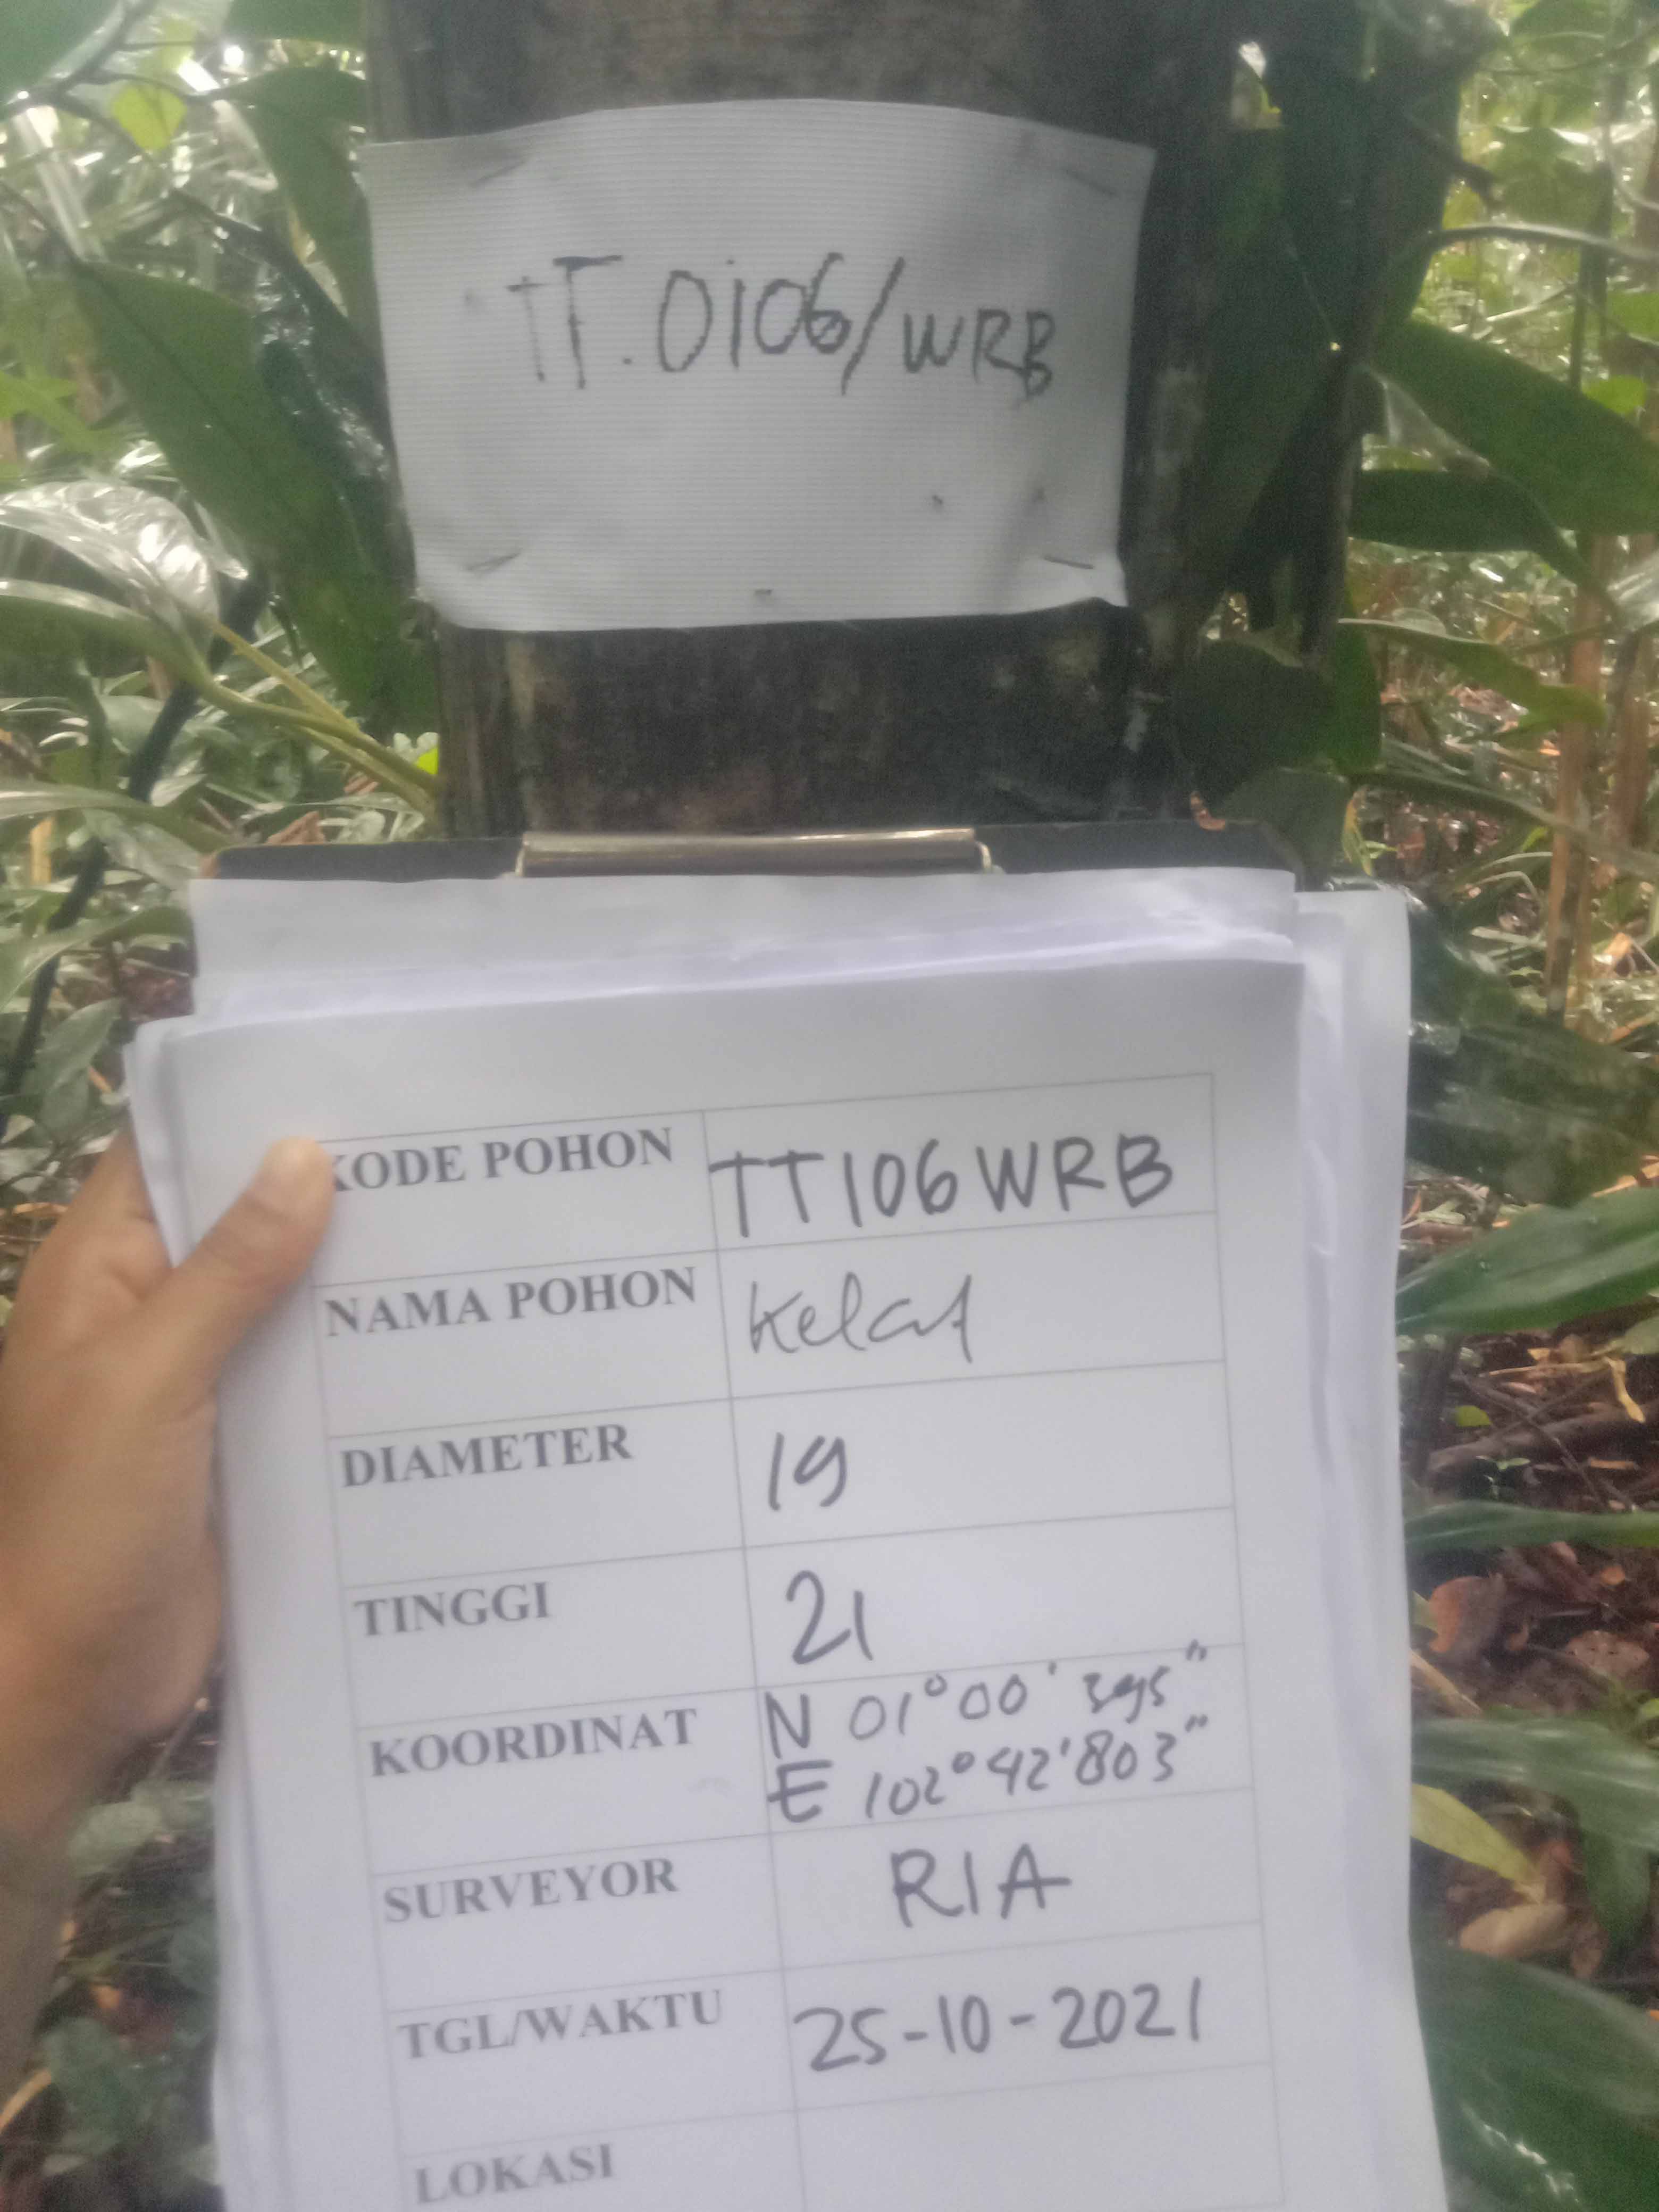 TT.0106/WRB
KODE POHON TT106WRB
NAMA POHON Kelat
DIAMETER 19
TINGGI 21
KOORDINAT N 01°00'395"
E 102°42'803"
SURVEYOR RIA
TGL/WAKTU 25-10-2021
LOKASI